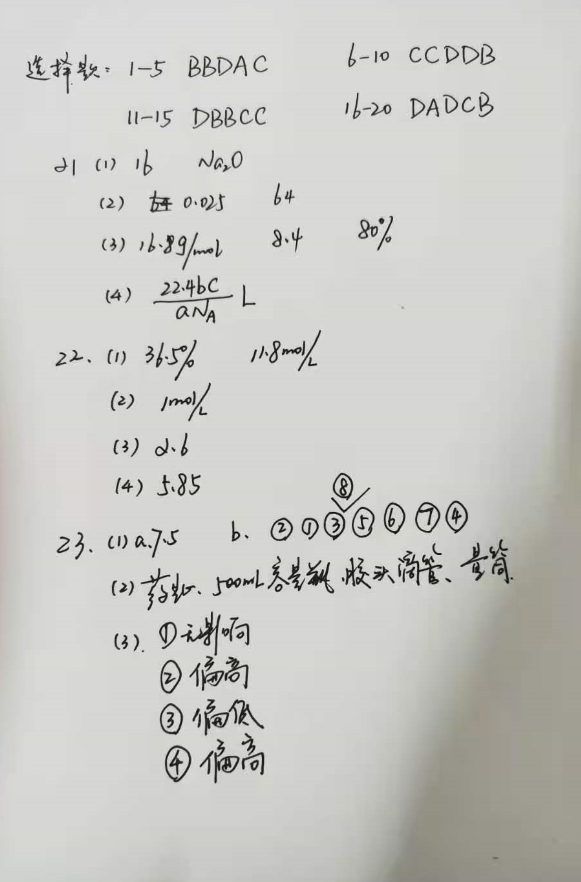 选择题: 1-5 BBDAC 6-10 CCDDB
11-15 DBBCC 16-20 DADCB
21 (1) 16 Na₂O
(2) 0.025 64
(3) 16.8g/mol 8.4 80%
(4) 22.4bC/aN_A L
22、(1) 36.5% 11.8mol/L
(2) 1mol/L
(3) 2.6
(4) 5.85
⑧
23、(1) a.7.5 b. ②①③⑤⑥⑦④
(2) 药匙、500mL容量瓶、胶头滴管、量筒
(3). ①无影响
②偏高
③偏低
④偏高